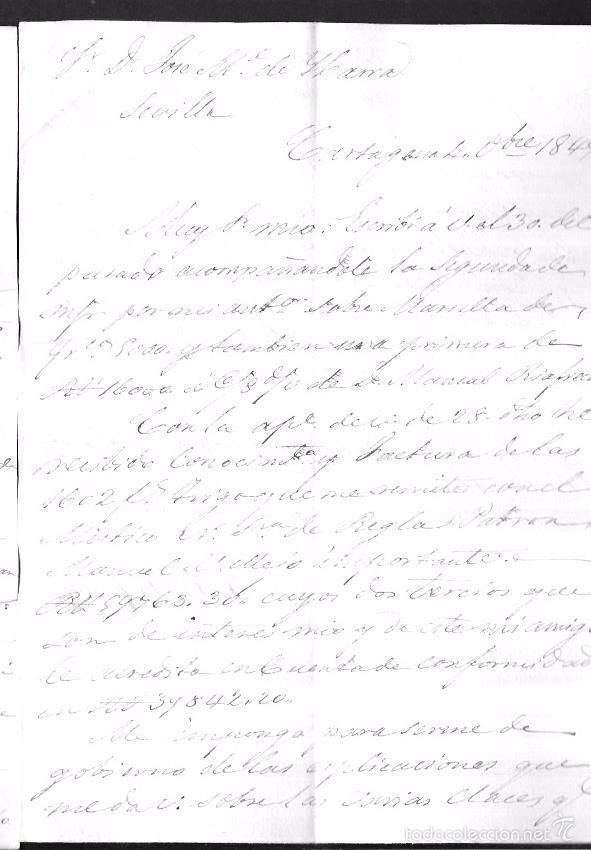 Sr. D. José Mª. de Ybarra
Sevilla
Cartagena 4. 8bre 184
Muy Sr. mio: Escribi á V. el 30. del
pasado acompañandole la segunda de
m/r por mi antor sobre Marsella de
5000. y tambien una primera de
16000. á c/ de D. Manuel
Con la apª. de V. de 28. dho he
recibido Conocimto. y Factura de las
1602 fs. trigo que me remite con el
Mistico Nª. Srª. de Regla Patron
Manuel importante
59763.30. cuyos dos tercios que
son de interes mio y de este mi amigo
le acredito en Cuenta de conformidad
en 39842.20.
Me impongo para serme de
gobierno de las esplicaciones que
me da V. sobre las varias clases y
todocoleccion.net